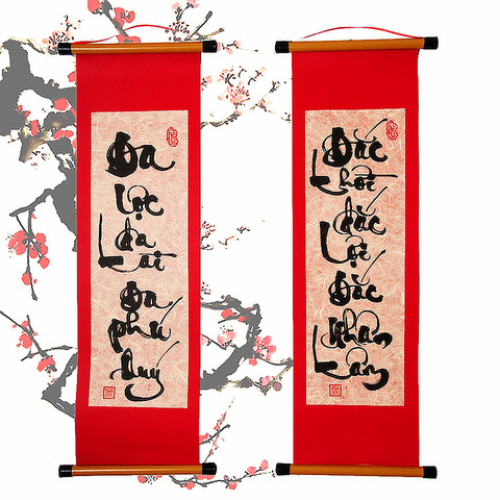 Đa
lộc
đa
tài
Đa
phú
quý
Đắc
thời
đắc
lợi
Đắc
nhân
tâm